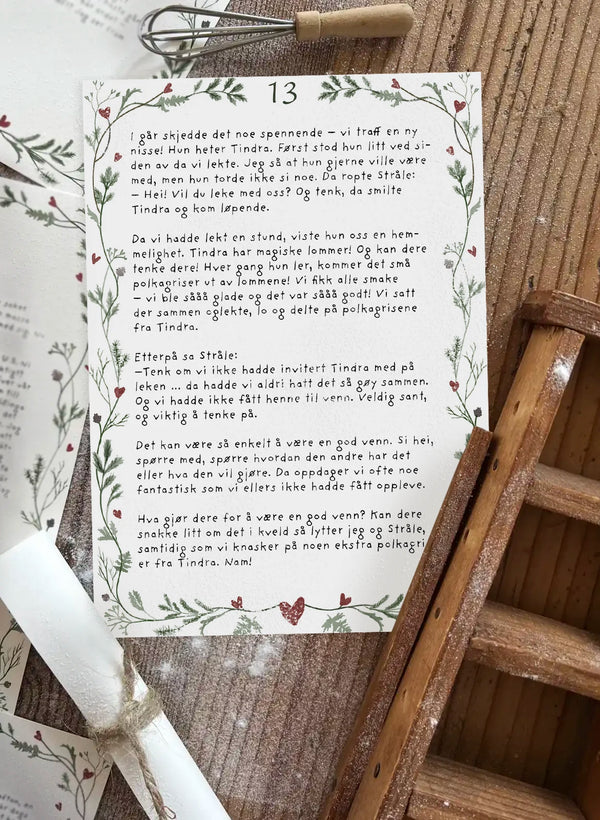 13
I går skjedde det noe spennende – vi traff en ny
nisse! Hun heter Tindra. Først stod hun litt ved si-
den av da vi lekte. Jeg så at hun gjerne ville være
med, men hun torde ikke si noe. Da ropte Stråle:
– Hei! Vil du leke med oss? Og tenk, da smilte
Tindra og kom løpende.
Da vi hadde lekt en stund, viste hun oss en hem-
melighet. Tindra har magiske lommer! Og kan dere
tenke dere! Hver gang hun ler, kommer det små
polkagriser ut av lommene! Vi fikk alle smake
– vi ble sååå glade og det var sååå godt! Vi satt
der sammen og lekte, lo og delte på polkagrisene
fra Tindra.
Etterpå sa Stråle:
–Tenk om vi ikke hadde invitert Tindra med på
leken ... da hadde vi aldri hatt det så gøy sammen.
Og vi hadde ikke fått henne til venn. Veldig sant,
og viktig å tenke på.
Det kan være så enkelt å være en god venn. Si hei,
spørre med, spørre hvordan den andre har det
eller hva den vil gjøre. Da oppdager vi ofte noe
fantastisk som vi ellers ikke hadde fått oppleve.
Hva gjør dere for å være en god venn? Kan dere
snakke litt om det i kveld så lytter jeg og Stråle,
samtidig som vi knasker på noen ekstra polkagri
er fra Tindra. Nam!